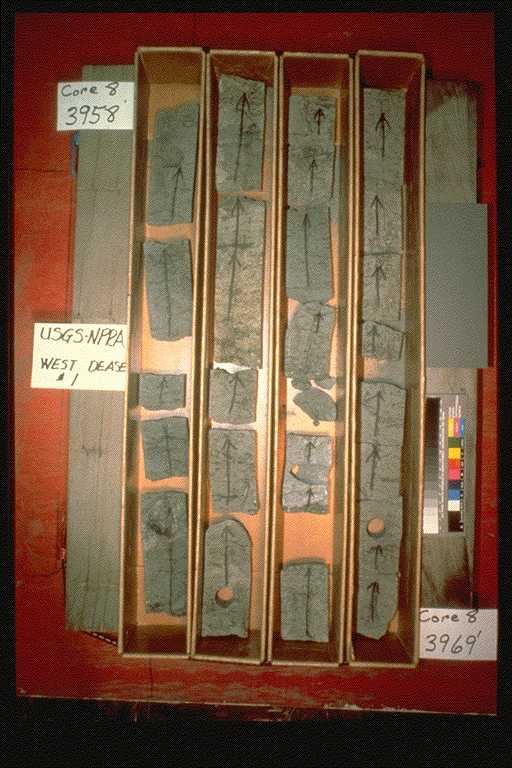 Core 8
3958'
USGS-NPRA
WEST DEASE
#1
Core 8
3969'